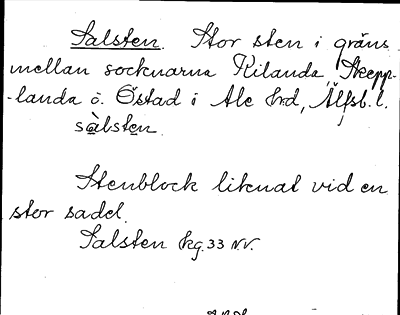 Salsten. Stor sten i gräns
mellan socknarna Kilanda, Skepp-
-landa o. Östad i Ale hrd, Älfsb. l.
sàlsten
Stenblock liknat vid en
stor sadel.
Salsten kg. 33 N.V.